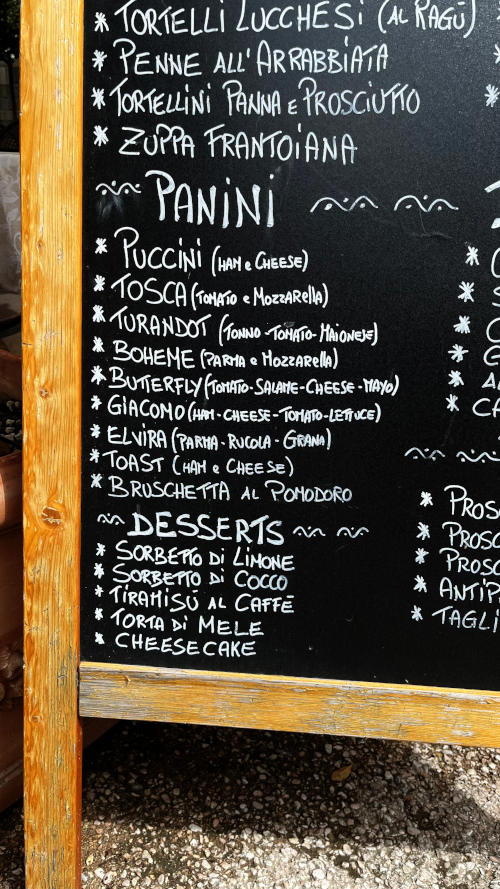 * TORTELLI LUCCHESI (AL RAGÙ)
* PENNE ALL'ARRABBIATA
* TORTELLINI PANNA e PROSCIUTTO
* ZUPPA FRANTOIANA
PANINI
* PUCCINI (HAM e CHEESE)
* TOSCA (TOMATO e MOZZARELLA)
* TURANDOT (TONNO - TOMATO - MAIONESE)
* BOHEME (PARMA e MOZZARELLA)
* BUTTERFLY (TOMATO - SALAME - CHEESE - MAYO)
* GIACOMO (HAM - CHEESE - TOMATO - LETTUCE)
* ELVIRA (PARMA - RUCOLA - GRANA)
* TOAST (HAM e CHEESE)
* BRUSCHETTA AL POMODORO
DESSERTS
* SORBETTO DI LIMONE
* SORBETTO DI COCCO
* TIRAMISÙ AL CAFFÈ
* TORTA DI MELE
* CHEESECAKE
* PROSC
* PROSC
* PROSC
* ANTIP
* TAGLI